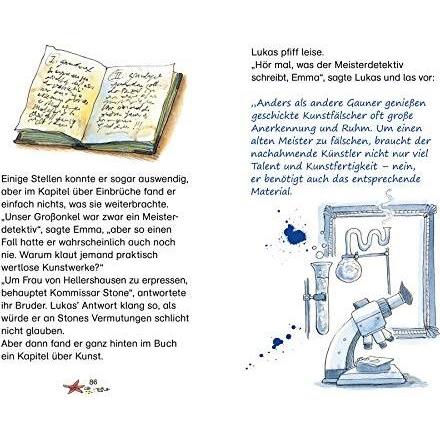 Einige Stellen konnte er sogar auswendig,
aber im Kapitel über Einbrüche fand er
einfach nichts, was sie weiterbrachte.
„Unser Großonkel war zwar ein Meister-
detektiv“, sagte Emma, „aber so einen
Fall hatte er wahrscheinlich auch noch
nie. Warum klaut jemand praktisch
wertlose Kunstwerke?“
„Um Frau von Hellershausen zu erpressen,
behauptet Kommissar Stone“, antwortete
ihr Bruder. Lukas’ Antwort klang so, als
würde er an Stones Vermutungen schlicht
nicht glauben.
Aber dann fand er ganz hinten im Buch
ein Kapitel über Kunst.
86
Lukas pfiff leise.
„Hör mal, was der Meisterdetektiv
schreibt, Emma“, sagte Lukas und las vor:
„Anders als andere Gauner genießen
geschickte Kunstfälscher oft große
Anerkennung und Ruhm. Um einen
alten Meister zu fälschen, braucht der
nachahmende Künstler nicht nur viel
Talent und Kunstfertigkeit – nein,
er benötigt auch das entsprechende
Material.